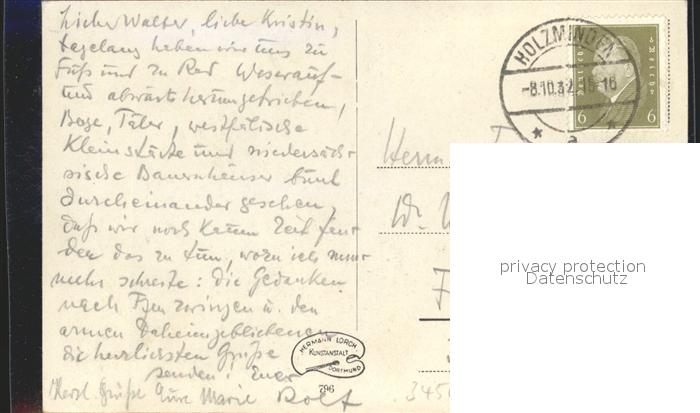 Lieber Walter, liebe Kristin,
tagelang haben wir uns zu
Fuß und zu Rad Weserauf-
und abwärts herumgetrieben,
Berge, Täler, westfälische
Kleinstädte und niedersäch-
sische Bauernhäuser bunt
durcheinander gesehen,
daß wir noch kaum Zeit fan-
den das zu tun, wozu ich nun-
mehr schreite: die Gedanken
nach zwingen u. den
armen Daheimgebliebenen
die herzlichsten Grüße
senden. Euer
Rolf
Herzl. Grüße Eure Marie
HOLZMINDEN
-8.10.32.15-16
* a *
Deutsches Reich
6 6
Herrn
Dr.
HERMANN LORCH
KUNSTANSTALT
DORTMUND
796
privacy protection
Datenschutz